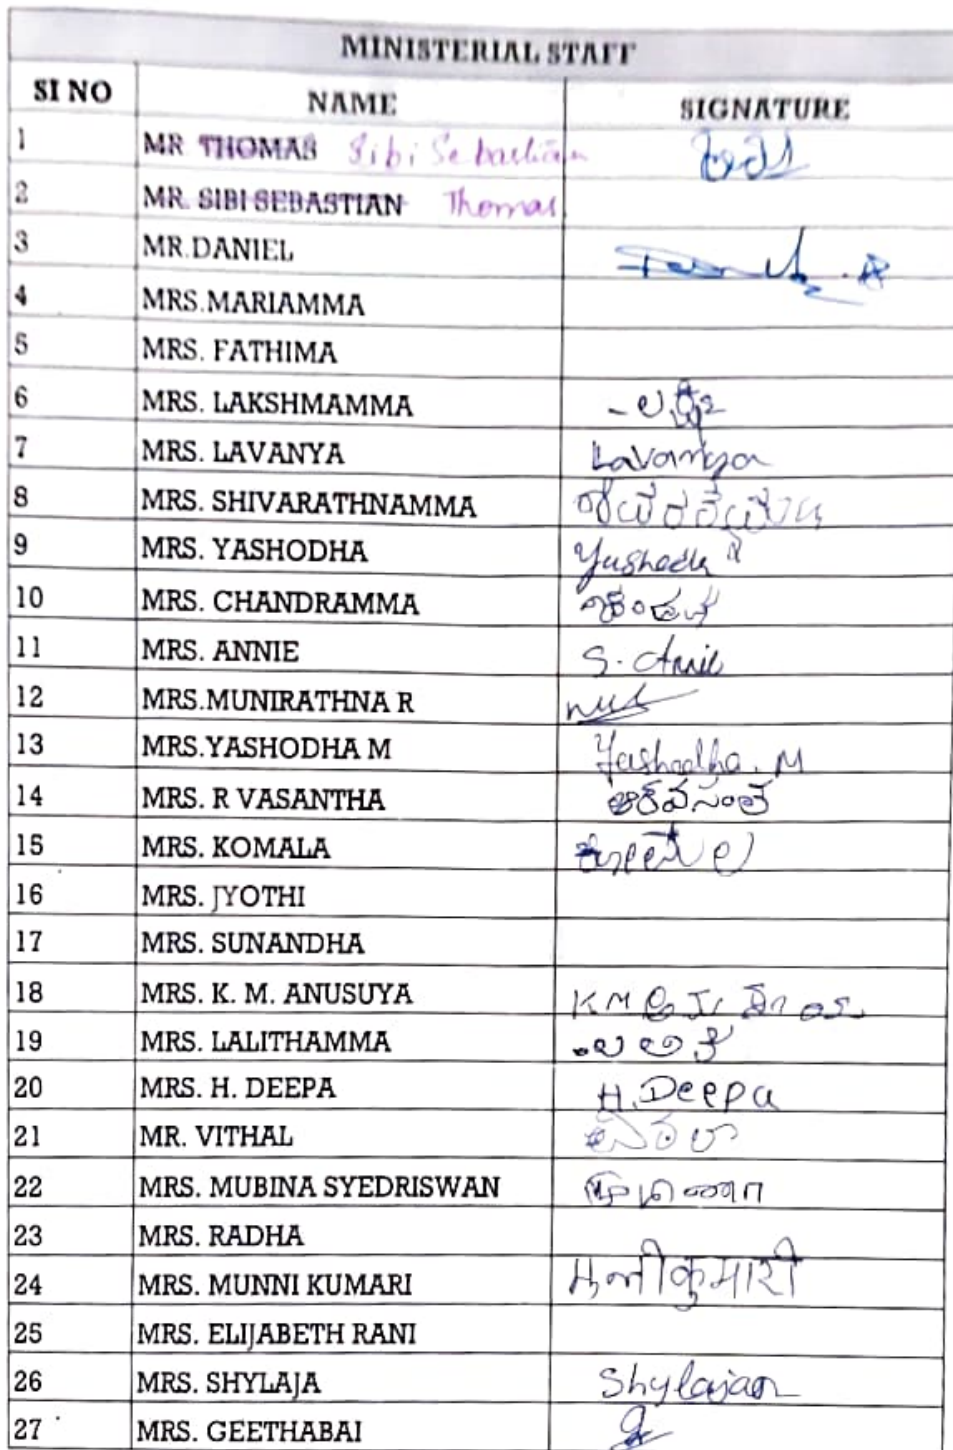 MINISTERIAL STAFF
SI NO NAME SIGNATURE
1 MR THOMAS Sibi Sebastian
2 MR. SIBI SEBASTIAN Thomas
3 MR.DANIEL
4 MRS.MARIAMMA
5 MRS. FATHIMA
6 MRS. LAKSHMAMMA
7 MRS. LAVANYA Lavanya
8 MRS. SHIVARATHNAMMA
9 MRS. YASHODHA
10 MRS. CHANDRAMMA
11 MRS. ANNIE S. Annie
12 MRS.MUNIRATHNA R
13 MRS.YASHODHA M Yashodha. M
14 MRS. R VASANTHA ಆರ್ ವಸಂತ
15 MRS. KOMALA
16 MRS. JYOTHI
17 MRS. SUNANDHA
18 MRS. K. M. ANUSUYA
19 MRS. LALITHAMMA
20 MRS. H. DEEPA H. Deepa
21 MR. VITHAL
22 MRS. MUBINA SYEDRISWAN
23 MRS. RADHA
24 MRS. MUNNI KUMARI मुन्नी कुमारी
25 MRS. ELIJABETH RANI
26 MRS. SHYLAJA
27 MRS. GEETHABAI